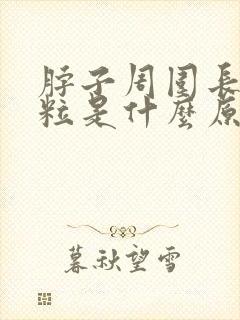 脖子周围長
粒是什麼原
暮秋望雪